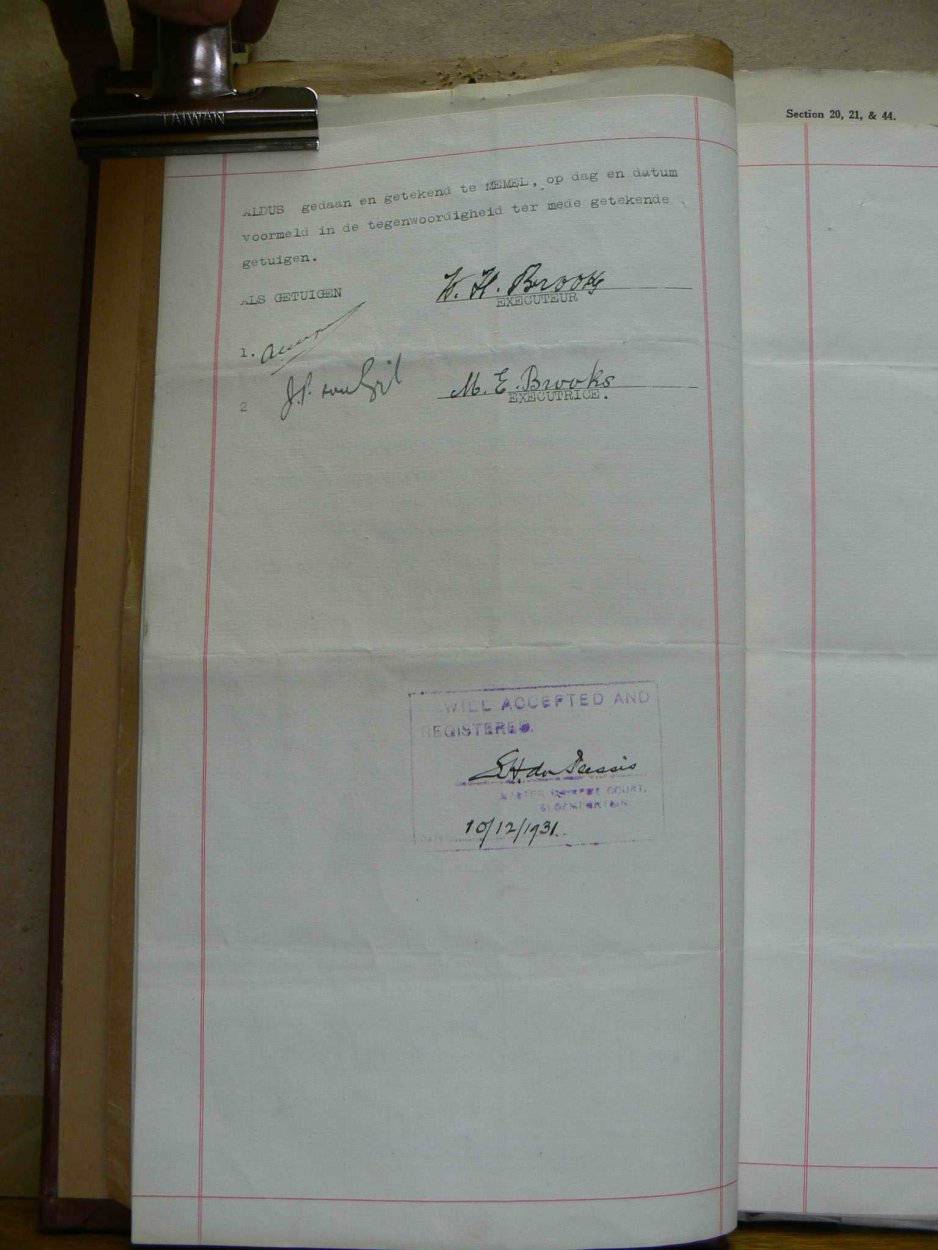 TAIWAN
Section 20, 21, & 44.
ALDUS gedaan en getekend te MEMEL, op dag en datum
voormeld in de tegenwoordigheid ter mede getekende
getuigen.
ALS GETUIGEN
W. H. Brooks
EXECUTEUR
1.
2
M. E. Brooks
EXECUTRICE.
WILL ACCEPTED AND
REGISTERED.
MASTER SUPREME COURT,
BLOEMFONTEIN
10/12/1931.